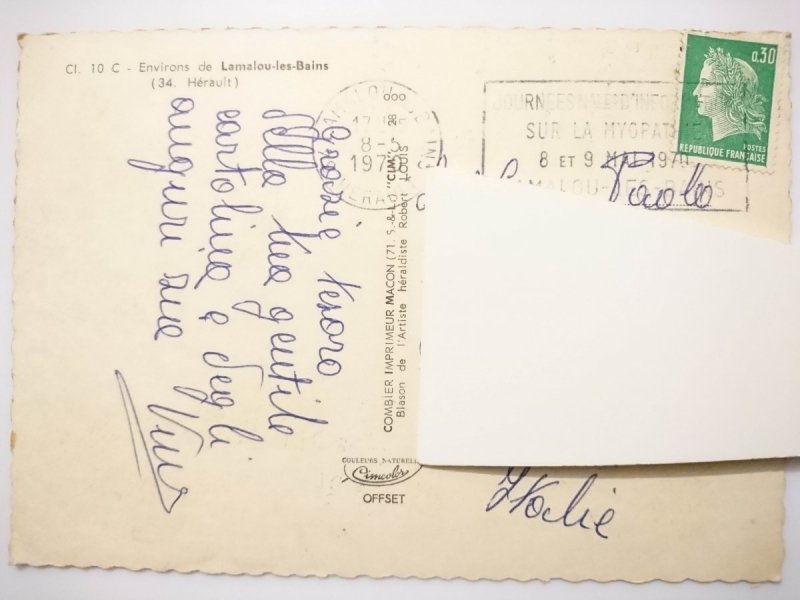 Cl. 10 C - Environs de Lamalou-les-Bains
(34. Hérault)
Grazie tesoro
della tua gentile
cartolina e degli
auguri zia
COMBIER IMPRIMEUR MACON (71. S.-&-L.) "CIM"
Blason de l'Artiste héraldiste Robert LOUIS
COULEURS NATURELLES
Cimcolor
OFFSET
17 H
8 -
JOURNEES NALES D'INFORMATION
SUR LA MYOPATHIE
8 ET 9 MAI 1971
LAMALOU-LES-BAINS
0,30
POSTES
REPUBLIQUE FRANÇAISE
Paolo
Italie